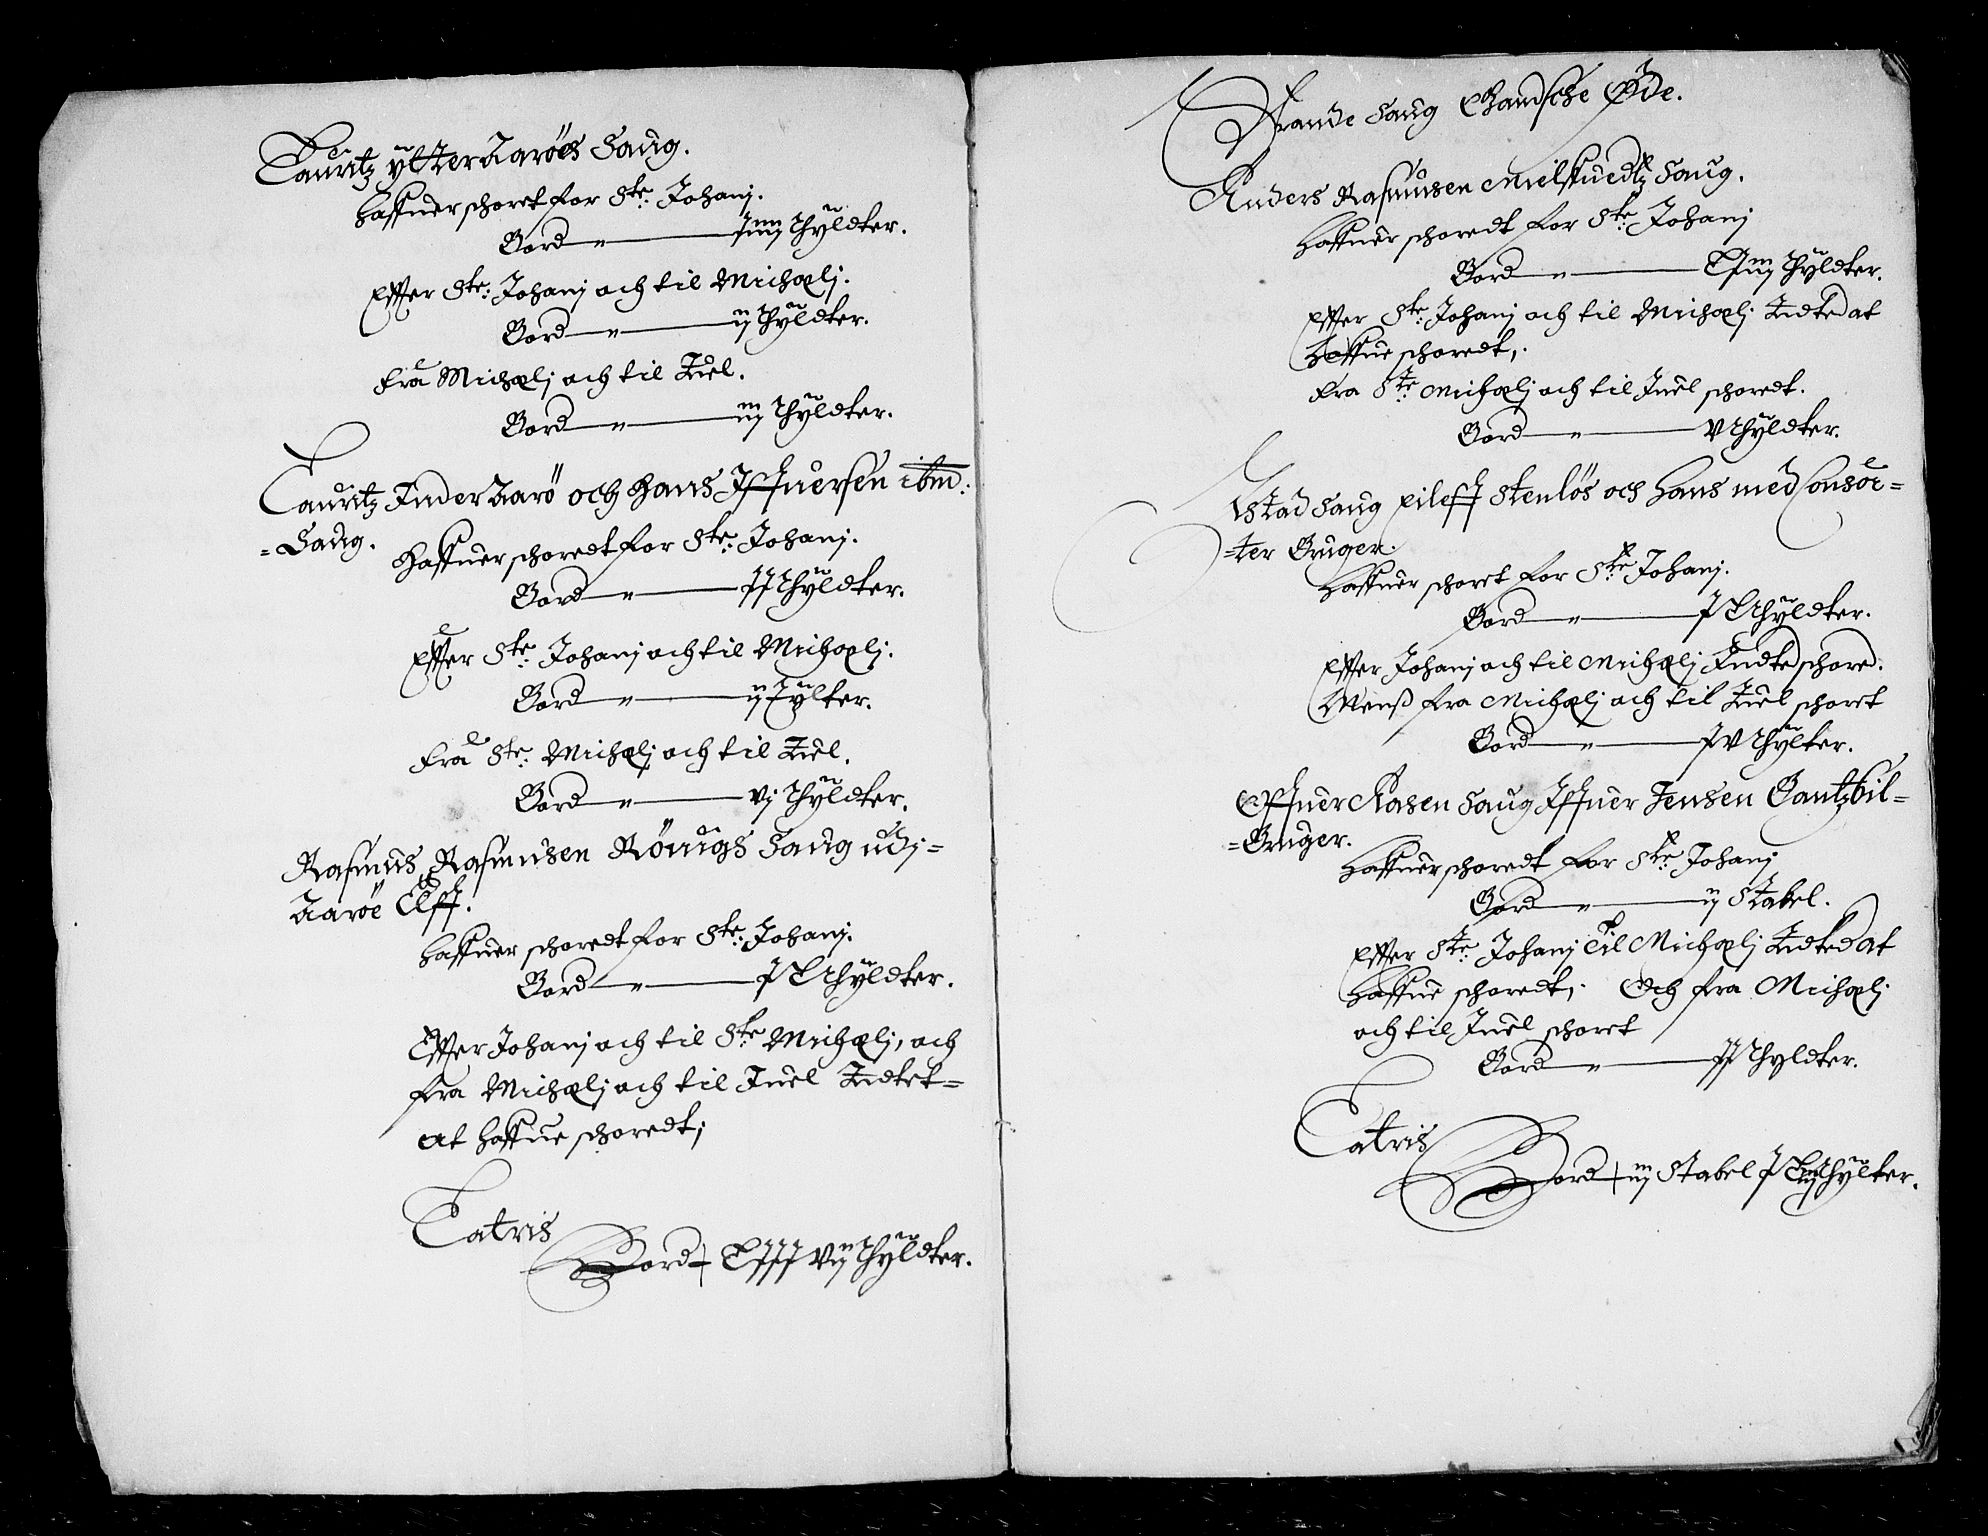 Lauritz ytter Aarøes Saug.
Haffuer schoret for Ste: Johanj.
Bord " — Jiiij Thyldter.
Effter Ste: Johanj och til Michaelj.
Bord " — ij Thyldter.
Fra Michaelj och til Juel.
Bord " — iij Thyldter.
Lauritz Inder Aarö och Hans Iffuersen ibm:
=Saug.
Haffuer schoredt for Ste: Johanj.
Bord " — JJ Thyldter.
Effter Ste: Johanj och til Michaelj.
Bord " — ij Tylter.
Fra Ste: Michaelj och til Juel.
Bord " — vj Thyldter.
Rasmus Rasmusen Rönigs Saug udj=
Aaröe Elff.
Haffuer schoredt for Ste: Johanj.
Bord " — J C Thyldter.
Effter Johanj och til Ste Michaelj, och
fra Michaelj och til Juel Indtet=
at haffue schoredt;
Latris
Bord C JJJ vij Thyldter.
Strande Saug Øde.
Anders Rasmusen Mielstuedtz Saug.
Haffuer schoredt for Ste: Johanj
Bord " — C J iij Thyldter.
Effter Ste: Johanj och til Michaelj Indted at
haffue schoredt,.
Fra Ste: Michaelj och til Juel schoredt.
Bord " — V Thyldter.
Vstad Saug Eileff Stenlös och Hans med Consor=
=ter Bruger.
Haffuer schoret for Ste: Johanj.
Bord " — J C Thyldter.
Effter Johanj och til Michaelj Indted schored.
Menß fra Michaelj och til Juel schoret
Bord " — JV Thylter.
Offuer Aasen Saug Iffuer Jensen Gantzbil=
=Bruger.
Haffuer schoredt for Ste: Johanj
Bord " — ij Stabel.
Effter Ste: Johanj Til Michaelj Indted at
haffue schoredt,. Och fra Michaelj
och til Juel schoret
Bord " — JJ Thyldter.
Latris
Bord iij Stabel J C Thylter.